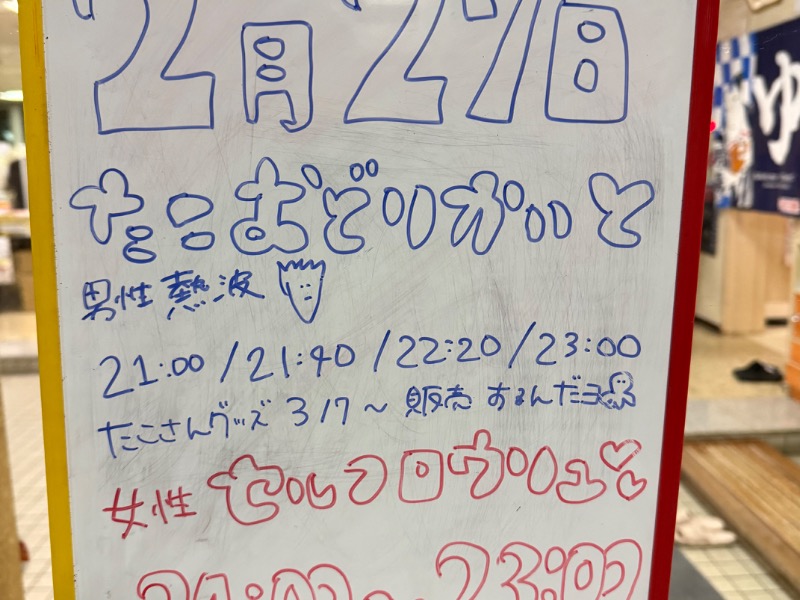 2月27日
たこおどりないと
男性 熱波
21:00 / 21:40 / 22:20 / 23:00
たこさんグッズ 3/7～ 販売 するんだヨ
女性 セルフロウリュ♡♡
21:00～23:00
ゆ